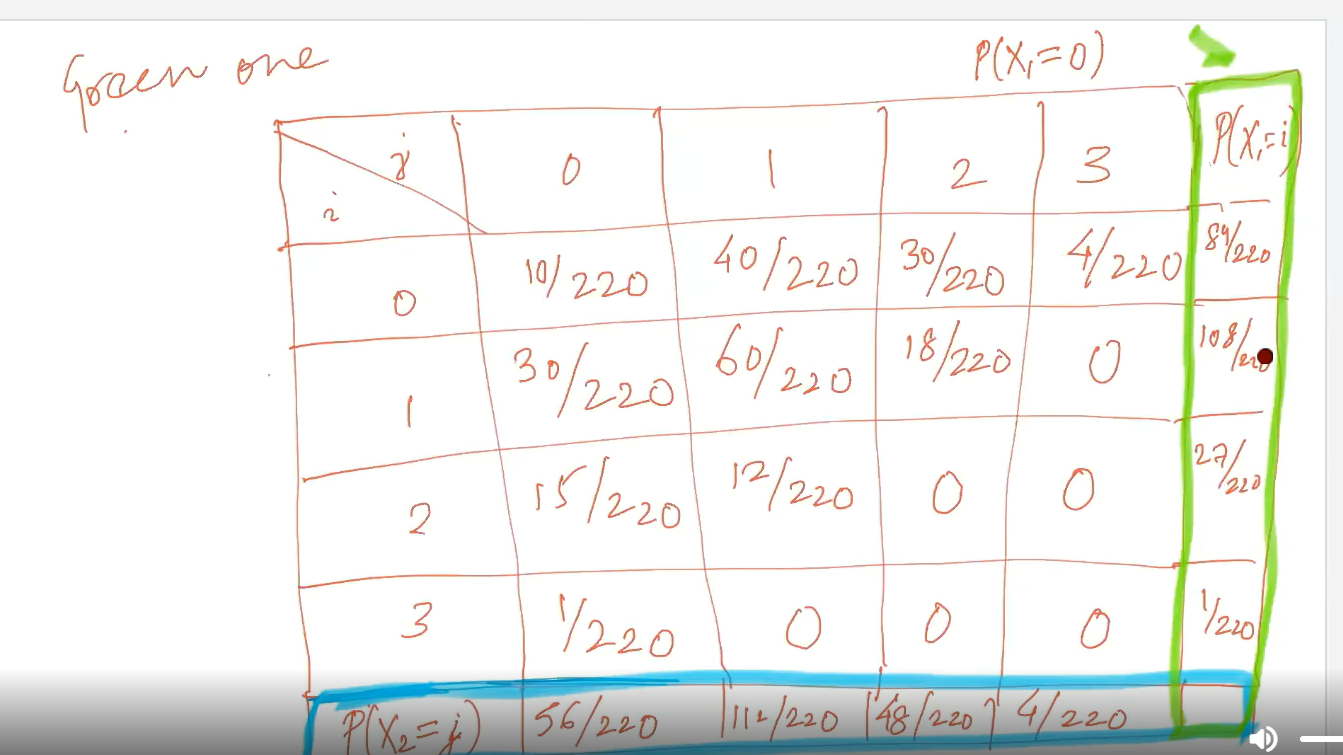 Green one
P(X₁=0)
j 0 1 2 3 P(X₁=i)
i
0 10/220 40/220 30/220 4/220 84/220
1 30/220 60/220 18/220 0 108/220
2 15/220 12/220 0 0 27/220
3 1/220 0 0 0 1/220
P(X₂=j) 56/220 112/220 48/220 4/220